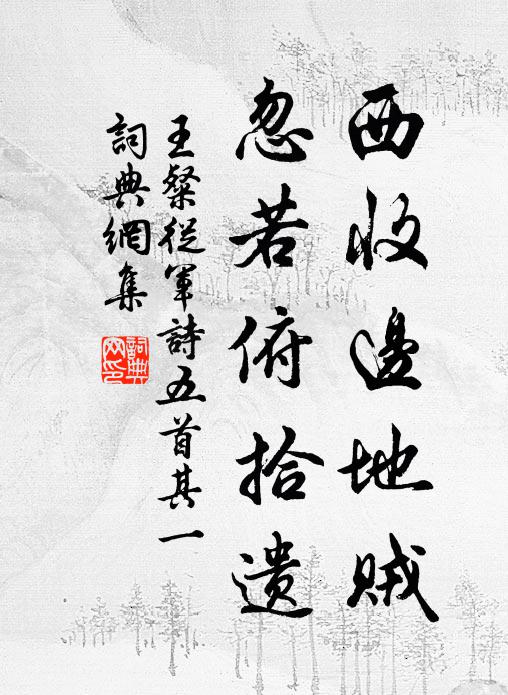 西收邊地賊
忽若俯拾遺
王粲從軍詩五首其一
詞典網集
詞典
网印